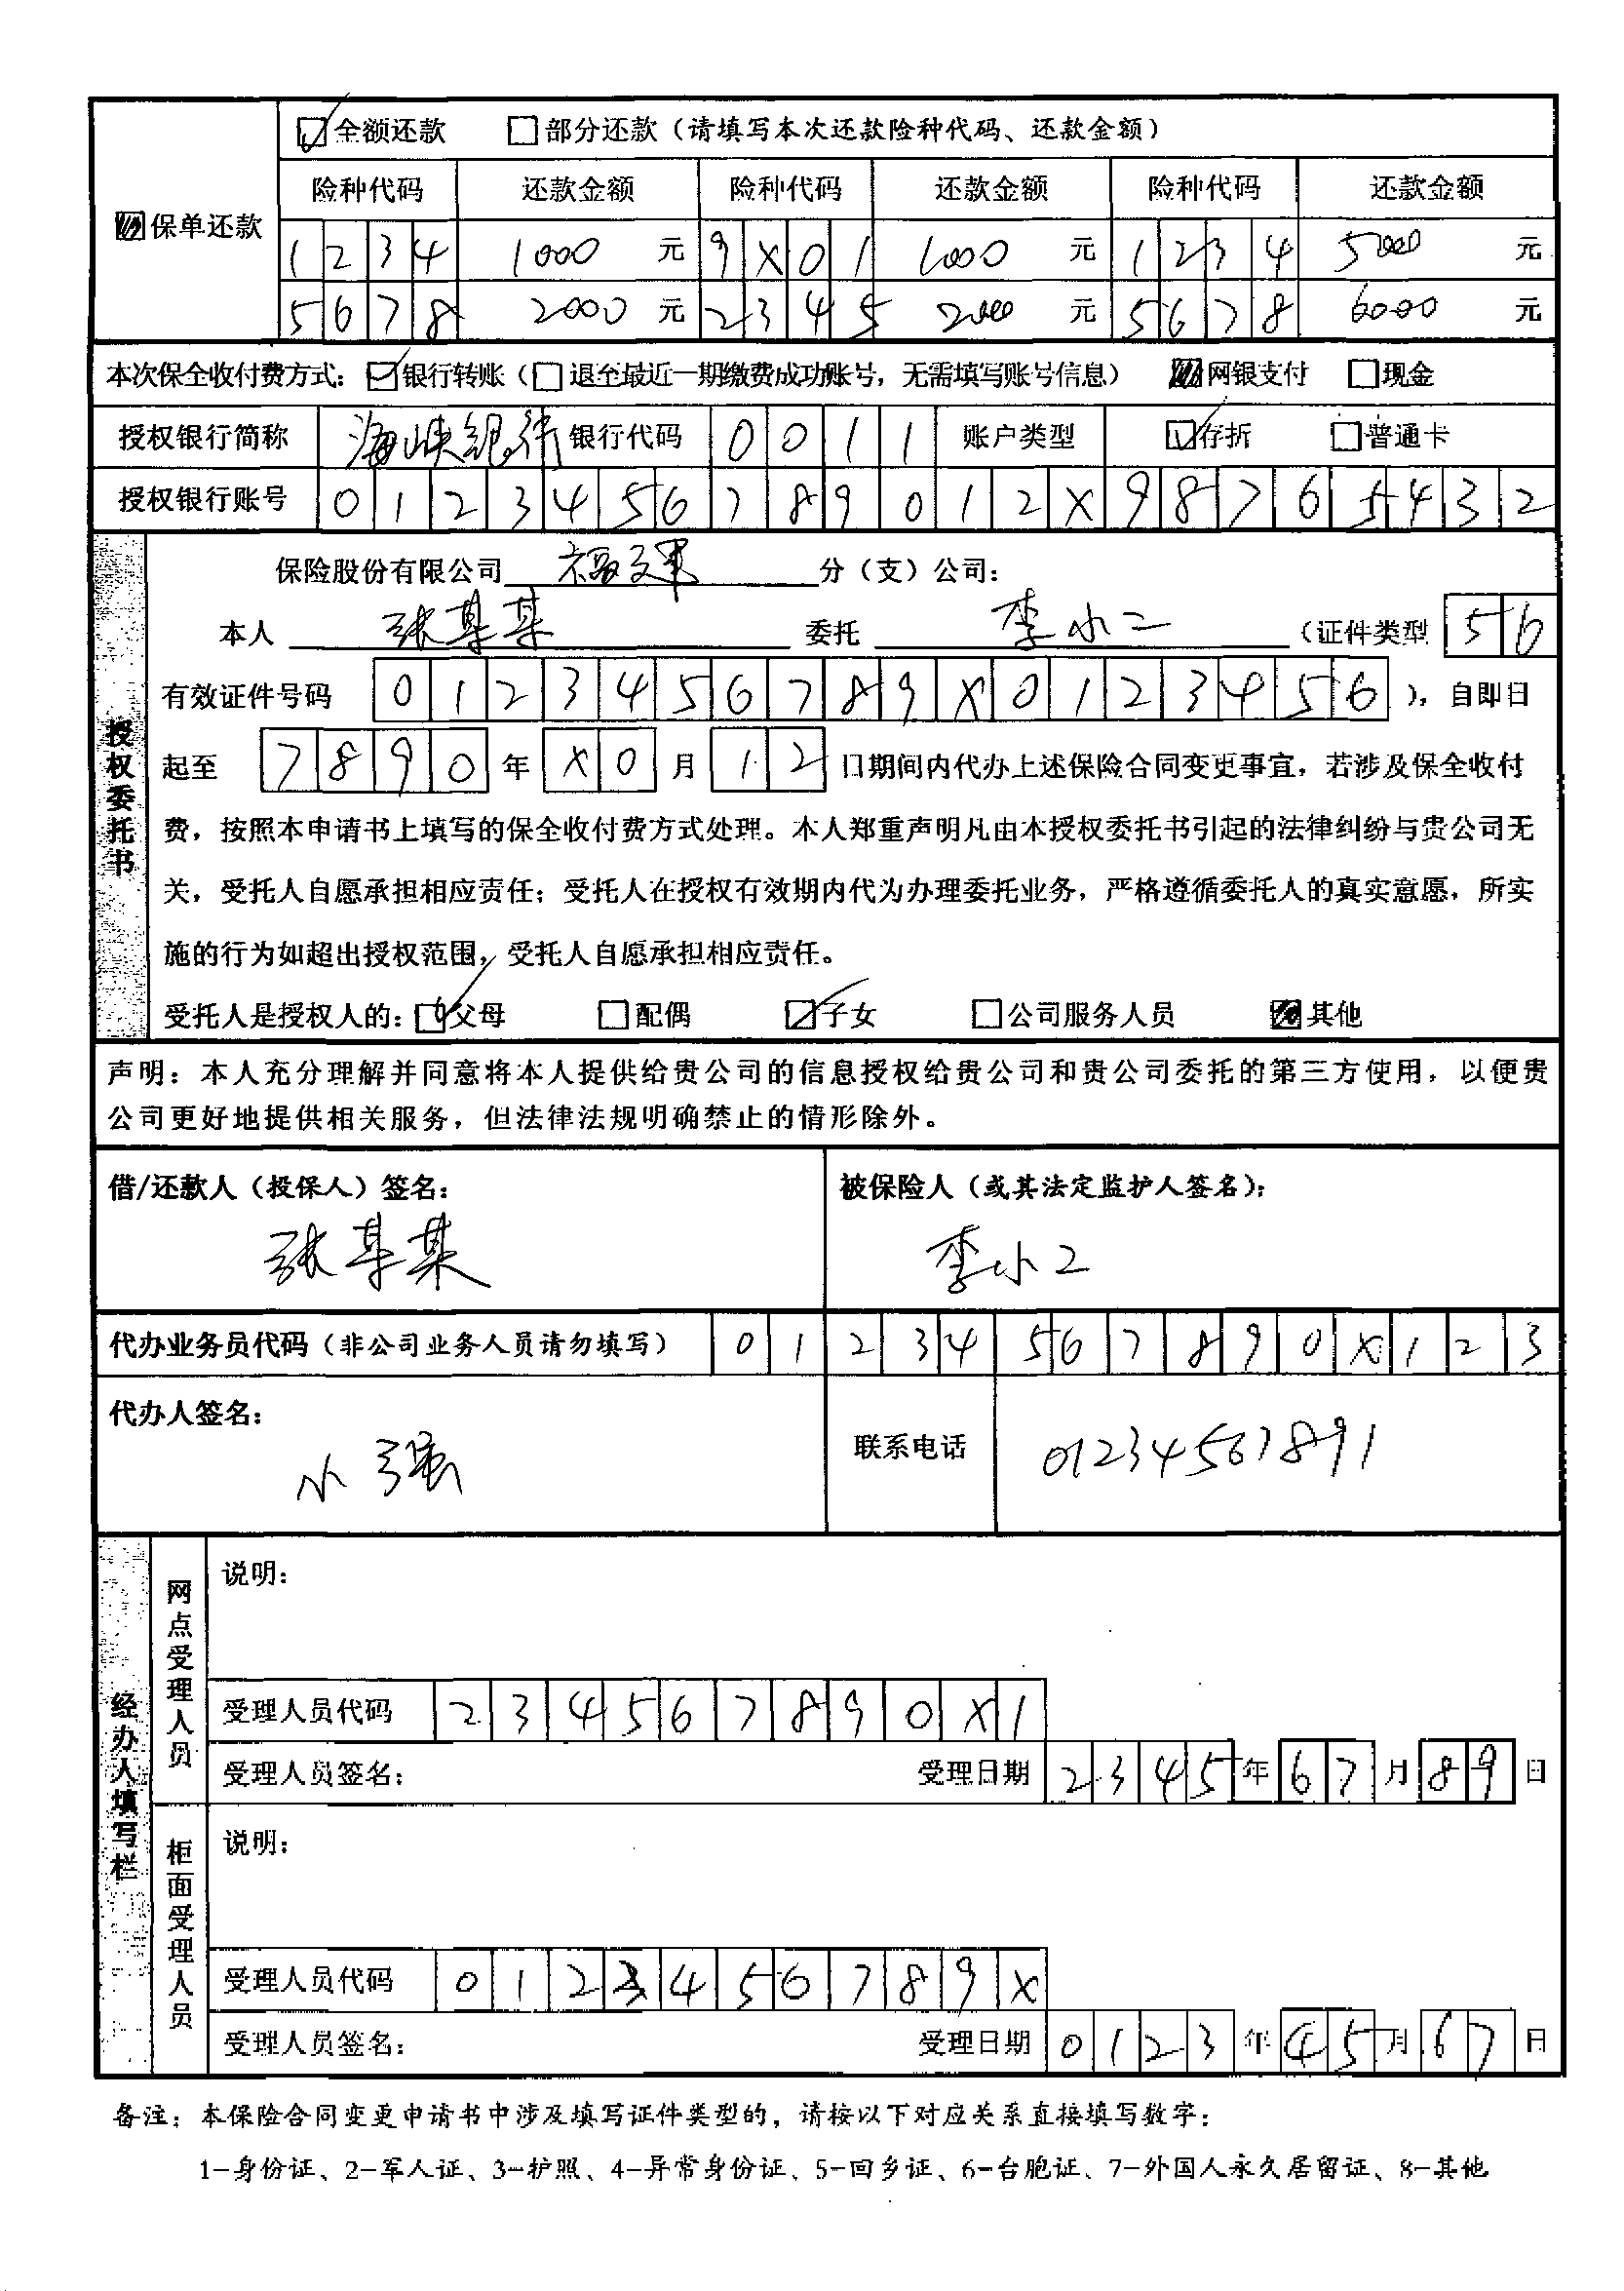 ☑全额还款 ☐部分还款（请填写本次还款险种代码、还款金额）
险种代码 还款金额 险种代码 还款金额 险种代码 还款金额
☑保单还款
1234 1000 元 9X01 1000 元 1234 5000 元
5678 2000 元 2345 2000 元 5678 6000 元
本次保全收付费方式：☑银行转账（☐退至最近一期缴费成功账号，无需填写账号信息） ☑网银支付 ☐现金
授权银行简称 海峡银行 银行代码 0011 账户类型 ☑存折 ☐普通卡
授权银行账号 0123456789012X98765432
授权委托书
保险股份有限公司 福建 分（支）公司：
本人 张某某 委托 李小二 （证件类型 56
有效证件号码 0123456789X0123456 ），自即日
起至 7890 年 X0 月 12 日期间内代办上述保险合同变更事宜，若涉及保全收付
费，按照本申请书上填写的保全收付费方式处理。本人郑重声明凡由本授权委托书引起的法律纠纷与贵公司无
关，受托人自愿承担相应责任；受托人在授权有效期内代为办理委托业务，严格遵循委托人的真实意愿，所实
施的行为如超出授权范围，受托人自愿承担相应责任。
受托人是授权人的：☑父母 ☐配偶 ☑子女 ☐公司服务人员 ☑其他
声明：本人充分理解并同意将本人提供给贵公司的信息授权给贵公司和贵公司委托的第三方使用，以便贵
公司更好地提供相关服务，但法律法规明确禁止的情形除外。
借/还款人（投保人）签名： 被保险人（或其法定监护人签名）：
张某某 李小2
代办业务员代码（非公司业务人员请勿填写） 01234567890X123
代办人签名：
小强 联系电话 01234567891
经办人填写栏
网点受理人员
说明：
受理人员代码 234567890X1
受理人员签名： 受理日期 2345 年 67 月 89 日
柜面受理人员
说明：
受理人员代码 0123456789X
受理人员签名： 受理日期 0123 年 45 月 67 日
备注：本保险合同变更申请书中涉及填写证件类型的，请按以下对应关系直接填写数字：
1-身份证、2-军人证、3-护照、4-异常身份证、5-回乡证、6-台胞证、7-外国人永久居留证、8-其他